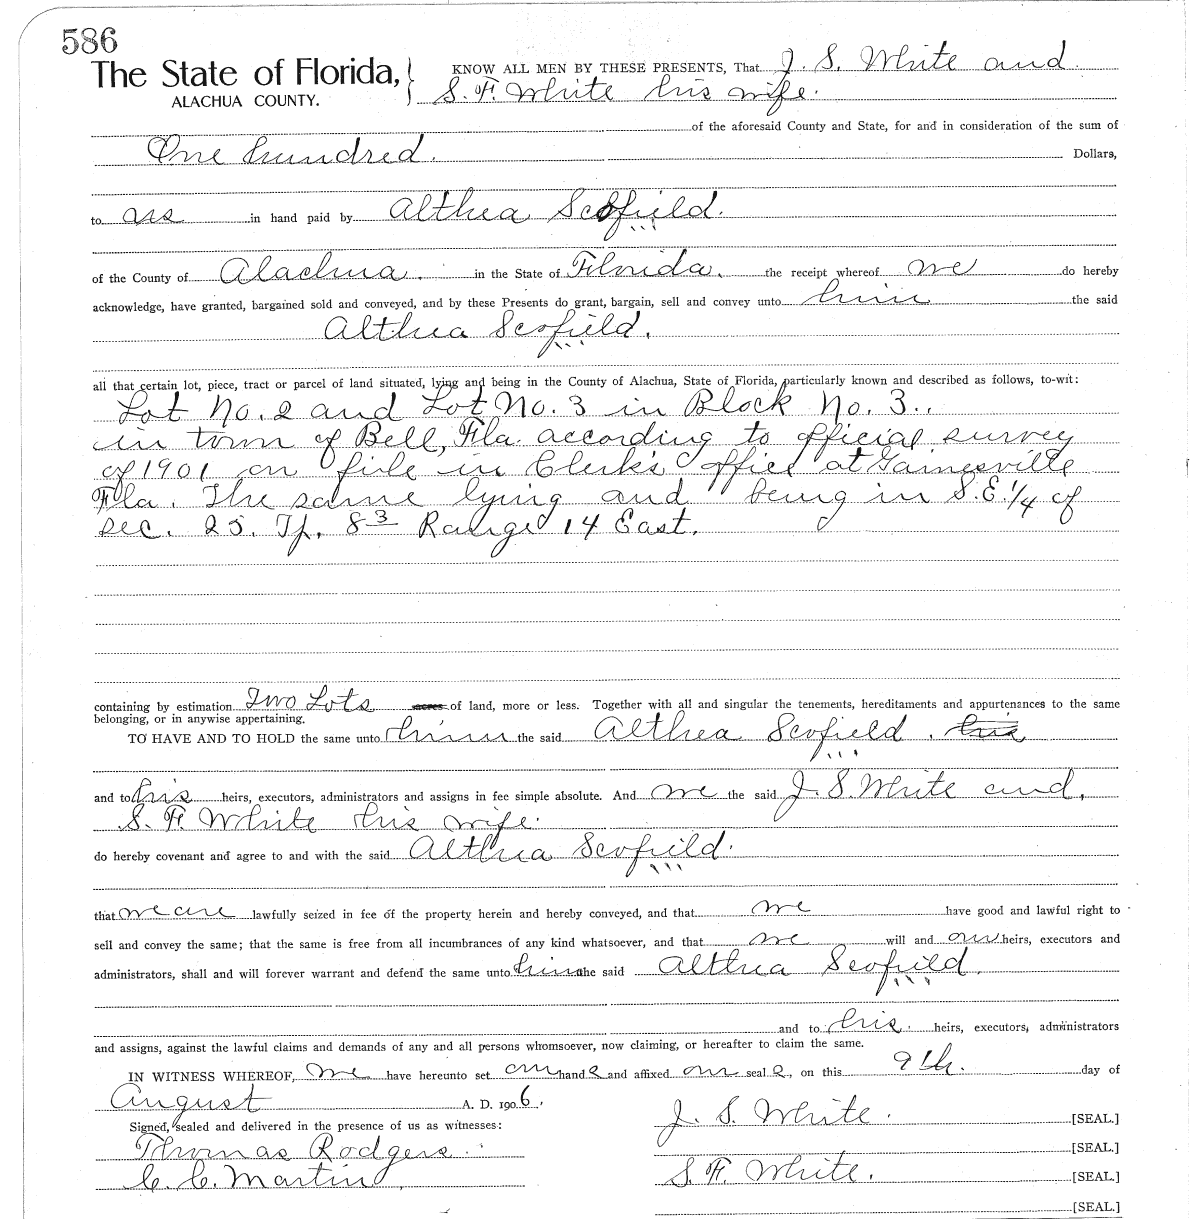 586
The State of Florida,
ALACHUA COUNTY.
KNOW ALL MEN BY THESE PRESENTS, That J. S. White and
S. F. White his wife.
of the aforesaid County and State, for and in consideration of the sum of
One hundred. Dollars,
to us in hand paid by Althea Scofield.
of the County of Alachua. in the State of Florida. the receipt whereof we do hereby
acknowledge, have granted, bargained sold and conveyed, and by these Presents do grant, bargain, sell and convey unto him the said
Althea Scofield.
all that certain lot, piece, tract or parcel of land situated, lying and being in the County of Alachua, State of Florida, particularly known and described as follows, to-wit:
Lot No. 2 and Lot No. 3 in Block No. 3..
in town of Bell, Fla. according to official survey
of 1901 on file in Clerk's office at Gainesville
Fla. The same lying and being in S.E. 1/4 of
sec. 25. Tp. 8 Range 14 East.
containing by estimation Two Lots acres of land, more or less. Together with all and singular the tenements, hereditaments and appurtenances to the same
belonging, or in anywise appertaining.
TO HAVE AND TO HOLD the same unto him the said Althea Scofield. his
and to his heirs, executors, administrators and assigns in fee simple absolute. And we the said J. S. White and,
S. F. White his wife.
do hereby covenant and agree to and with the said Althea Scofield.
that we are lawfully seized in fee of the property herein and hereby conveyed, and that we have good and lawful right to
sell and convey the same; that the same is free from all incumbrances of any kind whatsoever, and that we will and our heirs, executors and
administrators, shall and will forever warrant and defend the same unto him the said Althea Scofield.
and to his heirs, executors, administrators
and assigns, against the lawful claims and demands of any and all persons whomsoever, now claiming, or hereafter to claim the same.
IN WITNESS WHEREOF, we have hereunto set our hands and affixed our seals, on this 9th. day of
August A. D. 1906.
Signed, sealed and delivered in the presence of us as witnesses:
J. S. White. [SEAL.]
Thomas Rodgers. [SEAL.]
C. C. Martin S. F. White. [SEAL.]
[SEAL.]